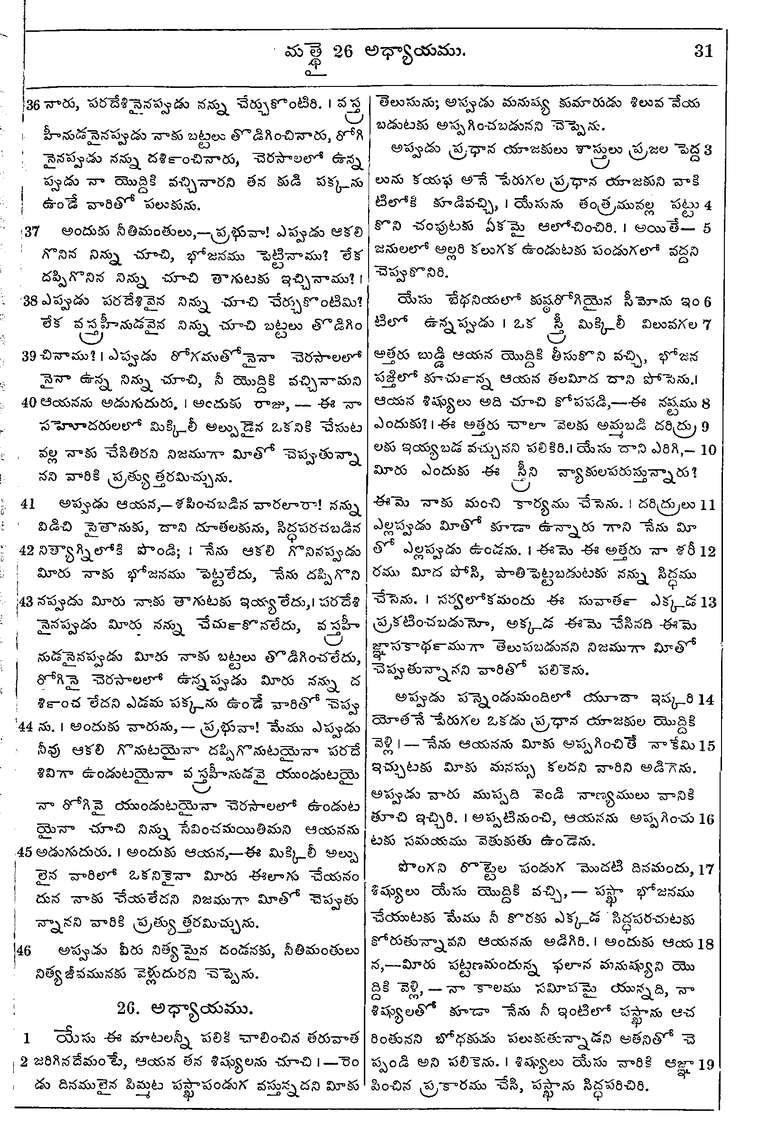 మత్థై 26 అధ్యాయము. 31
36 నారు, పరదేశినైనప్పుడు నన్ను చేర్చుకొంటిరి. । వస్త్ర
హీనుడనైనప్పుడు నాకు బట్టలు తొడిగించినారు, రోగి
నైనప్పుడు నన్ను దశి౯ంచినారు, చెరసాలలో ఉన్న
ప్పుడు నా యొద్దికి వచ్చినారని తన కుడి పక్కను
ఉండే వారితో పలుకును.
37 అందుకు నీతిమంతులు,—ప్రభువా! ఎప్పుడు ఆకలి
గొనిన నిన్ను చూచి, భోజనము పెట్టినాము? లేక
దప్పిగొనిన నిన్ను చూచి తాగుటకు ఇచ్చినాము?।
38 ఎప్పుడు పరదేశివైన నిన్ను చూచి చేర్చుకొంటిమి?
లేక వస్త్రహీనుడవైన నిన్ను చూచి బట్టలు తొడిగిం
39 చినాము?। ఎప్పుడు రోగముతోనైనా చెరసాలలో
నైనా ఉన్న నిన్ను చూచి, నీ యొద్దికి వచ్చినామని
40 ఆయనను అడుగుదురు. । అందుకు రాజు, — ఈ నా
సహోదరులలో మిక్కిలీ అల్పుడైన ఒకనికి చేసుట
వల్ల నాకు చేసితిరని నిజముగా మీతో చెప్పుతున్నా
నని వారికి ప్రత్యుత్తరమిచ్చును.
41 అప్పుడు ఆయన,—శపించబడిన వారలారా! నన్ను
విడిచి సైతానుకు, దాని దూతలకును, సిద్ధపరచబడిన
42 నిత్యాగ్నిలోకి పొండి; । నేను ఆకలి గొనినప్పుడు
మీరు నాకు భోజనము పెట్టలేదు, నేను దప్పిగొని
43 నప్పుడు మీరు నాకు తాగుటకు ఇయ్యలేదు,। పరదేశి
నైనప్పుడు మీరు నన్ను చేచు౯కొనలేదు, వస్త్రహీ
నుడనైనప్పుడు మీరు నాకు బట్టలు తొడిగించలేదు,
రోగినై చెరసాలలో ఉన్నప్పుడు మీరు నన్ను ద
శి౯ంచ లేదని ఎడమ పక్కను ఉండే వారితో చెప్పు
44 ను. । అందుకు వారును,—ప్రభువా! మేము ఎప్పుడు
నీవు ఆకలి గొనుటయైనా దప్పిగొనుటయైనా పరదే
శివిగా ఉండుటయైనా వస్త్రహీనుడవై యుండుటయై
నా రోగివై యుండుటయైనా చెరసాలలో ఉండుట
యైనా చూచి నిన్ను సేవించమయితిమని ఆయనను
45 అడుగుదురు. । అందుకు ఆయన,—ఈ మిక్కిలీ అల్పు
లైన వారిలో ఒకనికైనా మీరు ఈలాగు చేయనం
దున నాకు చేయలేదని నిజముగా మీతో చెప్పుతు
న్నానని వారికి ప్రత్యుత్తరమిచ్చును.
46 అప్పుడు వీరు నిత్యమైన దండనకు, నీతిమంతులు
నిత్యజీవమునకు వెళ్లుదురని చెప్పెను.
26. అధ్యాయము.
1 యేసు ఈ మాటలన్నీ పలికి చాలించిన తరువాత
2 జరిగినదేమంటే, ఆయన తన శిష్యులను చూచి।—రెం
డు దినములైన పిమ్మట పస్ఖాపండుగ వస్తున్నదని మీకు
తెలుసును; అప్పుడు మనుష్య కుమారుడు శిలువ వేయ
బడుటకు అప్పగించబడునని చెప్పెను.
అప్పుడు ప్రధాన యాజకులు శాస్త్రులు ప్రజల పెద్ద 3
లును కయఫ అనే పేరుగల ప్రధాన యాజకుని వాకి
టిలోకి కూడివచ్చి, । యేసును తంత్రమువల్ల పట్టు 4
కొని చంపుటకు ఏకమై ఆలోచించిరి. । అయితే— 5
జనులలో అల్లరి కలుగక ఉండుటకు పండుగలో వద్దని
చెప్పుకొనిరి.
యేసు బేథనియలో కుష్ఠరోగియైన సీమోను ఇం 6
టిలో ఉన్నప్పుడు । ఒక స్త్రీ మిక్కిలీ విలువగల 7
అత్తరు బుడ్డి ఆయన యొద్దికి తీసుకొని వచ్చి, భోజన
పఙ్తిలో కూచు౯న్న ఆయన తలమీద దాని పోసెను.।
ఆయన శిష్యులు అది చూచి కోపపడి,—ఈ నష్టము 8
ఎందుకు?। ఈ అత్తరు చాలా వెలకు అమ్మబడి దరిద్రు 9
లకు ఇయ్యబడ వచ్చునని పలికిరి.। యేసు దాని ఎరిగి,— 10
మీరు ఎందుకు ఈ స్త్రీని వ్యాకులపరుస్తున్నారు?
ఈమె నాకు మంచి కార్యము చేసెను. । దరిద్రులు 11
ఎల్లప్పుడు మీతో కూడా ఉన్నారు గాని నేను మీ
తో ఎల్లప్పుడు ఉండను. । ఈమె ఈ అత్తరు నా శరీ 12
రము మీద పోసి, పాతిపెట్టబడుటకు నన్ను సిద్ధము
చేసెను. । సర్వలోకమందు ఈ సువాత౯ ఎక్కడ 13
ప్రకటించబడునో, అక్కడ ఈమె చేసినది ఈమె
జ్ఞాపకాథ౯ముగా తెలుపబడునని నిజముగా మీతో
చెప్పుతున్నానని వారితో పలికెను.
అప్పుడు పన్నెండుమందిలో యూదా ఇష్కరి 14
యోతనే పేరుగల ఒకడు ప్రధాన యాజకుల యొద్దికి
వెళ్లి।— నేను ఆయనను మీకు అప్పగించితే నాకేమి 15
ఇచ్చుటకు మీకు మనస్సు కలదని వారిని అడిగెను.
అప్పుడు వారు ముప్పది వెండి నాణ్యములు వానికి
తూచి ఇచ్చిరి. । అప్పటినుంచి, ఆయనను అప్పగించు 16
టకు సమయము వెతుకుతు ఉండెను.
పొంగని రొట్టెల పండుగ మొదటి దినమందు, 17
శిష్యులు యేసు యొద్దికి వచ్చి,— పస్ఖా భోజనము
చేయుటకు మేము నీ కొరకు ఎక్కడ సిద్ధపరచుటకు
కోరుతున్నావని ఆయనను అడిగిరి. । అందుకు ఆయ 18
న,—మీరు పట్టణమందున్న ఫలాన మనుష్యుని యొ
ద్దికి వెళ్లి,— నా కాలము సమీపమై యున్నది, నా
శిష్యులతో కూడా నేను నీ ఇంటిలో పస్ఖాను ఆచ
రింతునని బోధకుడు పలుకుతున్నాడని అతనితో చె
ప్పండి అని పలికెను. । శిష్యులు యేసు వారికి ఆజ్ఞా 19
పించిన ప్రకారము చేసి, పస్ఖాను సిద్ధపరిచిరి.